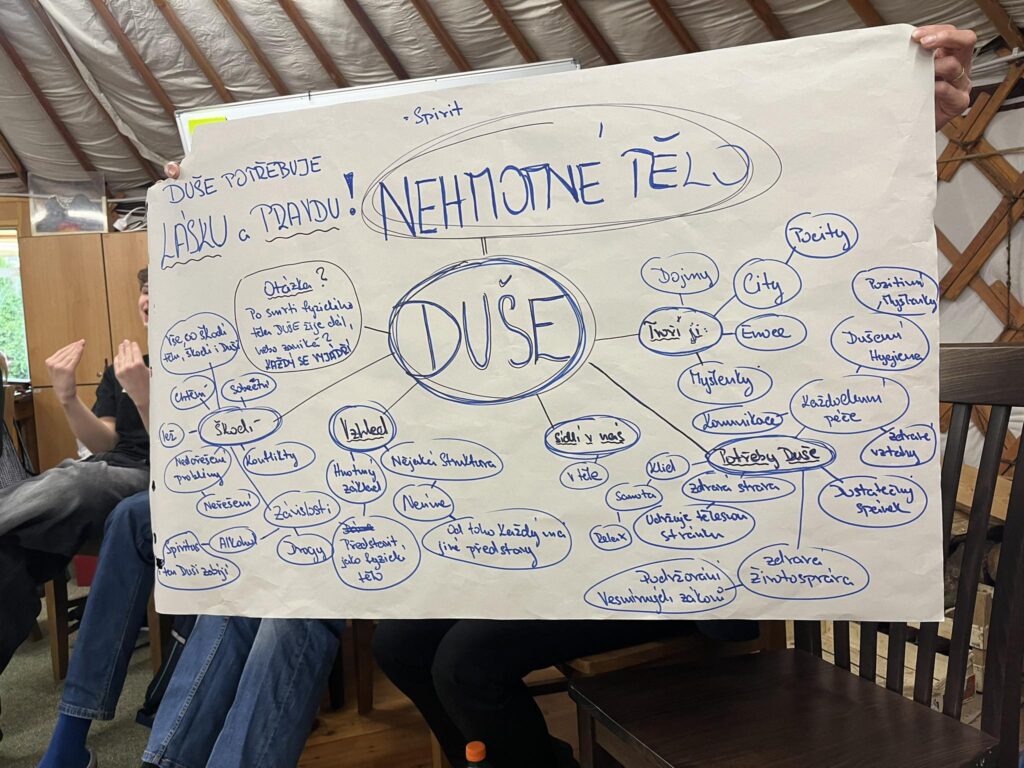 • Spirit
DUŠE POTŘEBUJE
LÁSKU a PRAVDU!
NEHMOTNÉ TĚLO
DUŠE
Otázka?
Po smrti fyzického
těla DUŠE žije dál,
nebo zaniká?
KAŽDÝ SE VYJÁDŘÍ
Vše, co škodí
tělu, škodí i Duši
Chtění
Sobectví
Škodí
lež
Nedořešené
problémy
Konflikty
Neřešení
Závislosti
Alkohol
Drogy
Spiritus
i tou Duši zabíjí
Vzhled
Hmotný
základ
Nějaká struktura
Nemine
Představit
jako fyzické
tělo
Od toho každý má
jiné představy
Sídlí v nás
v těle
Tvoří ji:
Dojmy
City
Pocity
Emoce
Myšlenky
Potřeby Duše
Komunikace
Každodenní
péče
Duševní
Hygiena
Pozitivní
Myšlenky
Zdravé
vztahy
Dostatečný
spánek
Klid
Samota
Relax
Zdravá strava
Udržuje tělesnou
stránku
Zdravá
Životospráva
Dodržování
Vesmírných zákonů